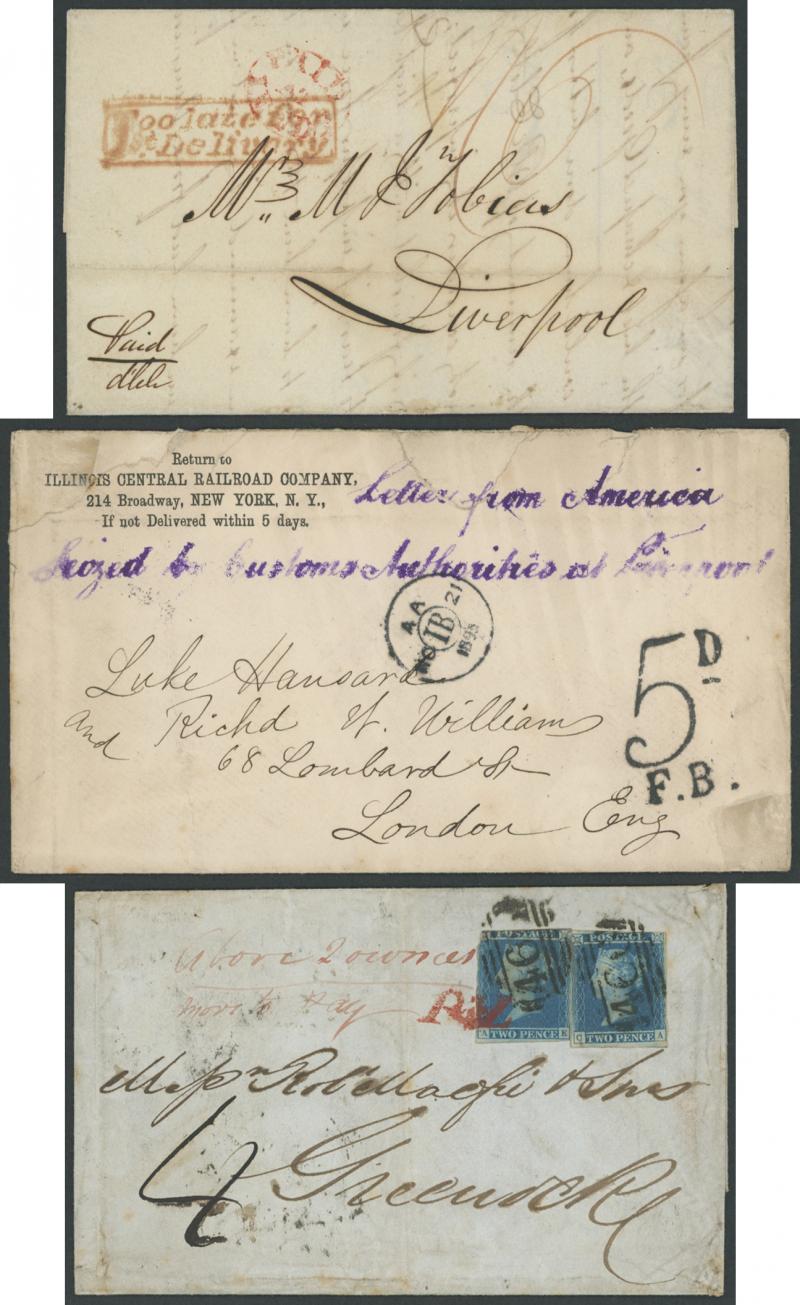 Too late for
1st Delivery
PAID
Mr. M J Tobias
Liverpool
Paid
Return to
ILLINOIS CENTRAL RAILROAD COMPANY,
214 Broadway, NEW YORK, N. Y.,
If not Delivered within 5 days.
Letter from America
Seized by Customs Authorities at Liverpool
AA
IB
NO 21
1895
5D
F.B.
Luke Hansard
and Richd W. Williams
68 Lombard St
London Eng
Above 2 ounces
more to pay
POSTAGE POSTAGE
466 466
A TWO PENCE K C TWO PENCE A
Messrs Robt Macfie & Sons
4
Greenock